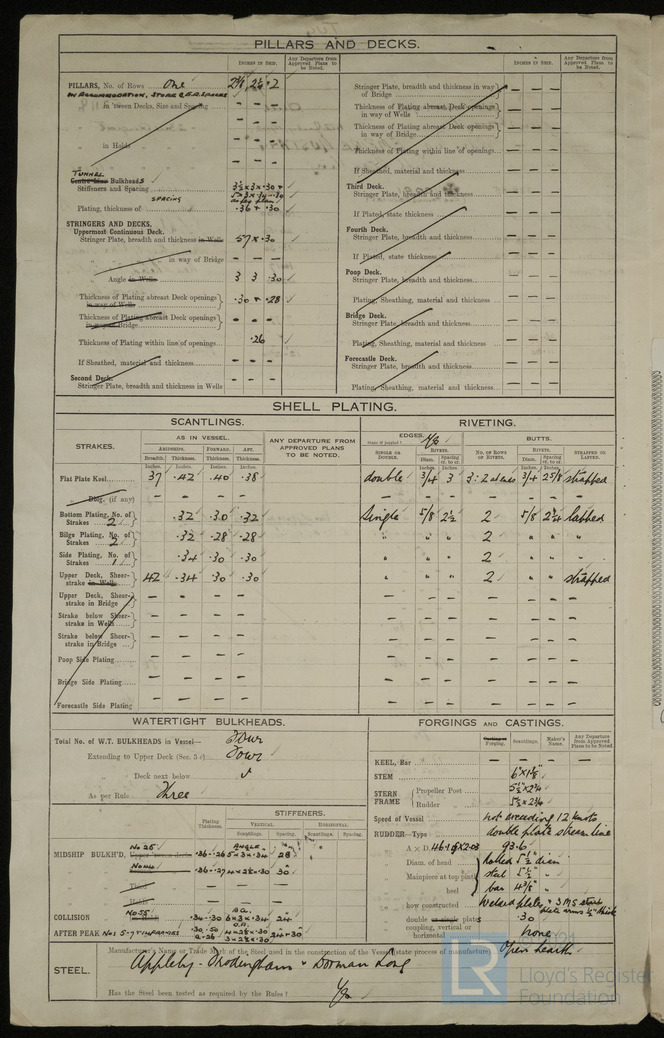 PILLARS AND DECKS.
INCHES IN SHIP.
Any Departure from Approved Plans to be Noted.
INCHES IN SHIP.
Any Departure from Approved Plans to be Noted.
PILLARS, No. of Rows One
in 'tween Decks, Size and Spacing
in Holds
TUNNEL
Centre line Bulkheads
Stiffeners and Spacing 3½ × 3 × .30 +
SPACING
as per plan
Plating, thickness of .36 + .30
STRINGERS AND DECKS.
Uppermost Continuous Deck.
Stringer Plate, breadth and thickness in Wells 57 × .30
" " in way of Bridge — — —
Angle in Wells 3 3 .30
Thickness of Plating abreast Deck openings in way of Wells .30 + .28
Thickness of Plating abreast Deck openings in way of Bridge - - -
Thickness of Plating within line of openings .26
If Sheathed, material and thickness - - -
Second Deck.
Stringer Plate, breadth and thickness in Wells - - -
Stringer Plate, breadth and thickness in way of Bridge — — —
Thickness of Plating abreast Deck openings in way of Wells — — —
Thickness of Plating abreast Deck openings in way of Bridge — — —
Thickness of Plating within line of openings — — —
If Sheathed, material and thickness — — —
Third Deck.
Stringer Plate, breadth and thickness — — —
If Plated, state thickness — — —
Fourth Deck.
Stringer Plate, breadth and thickness — — —
If Plated, state thickness — — —
Poop Deck.
Stringer Plate, breadth and thickness — — —
Plating, Sheathing, material and thickness — — —
Bridge Deck.
Stringer Plate, breadth and thickness — — —
Plating, Sheathing, material and thickness — — —
Forecastle Deck.
Stringer Plate, breadth and thickness — — —
Plating, Sheathing, material and thickness — — —
SHELL PLATING.
SCANTLINGS.
RIVETING.
STRAKES.
AS IN VESSEL.
ANY DEPARTURE FROM APPROVED PLANS TO BE NOTED.
EDGES.
State if joggled? No
BUTTS.
AMIDSHIPS.
FORWARD.
AFT.
Breadth.
Thickness.
Thickness.
Thickness.
SINGLE OR DOUBLE.
RIVETS.
Diam.
Spacing cr. to cr.
NO. OF ROWS OF RIVETS.
RIVETS.
Diam.
Spacing cr. to cr.
STRAPPED OR LAPPED.
Flat Plate Keel 37 .42 .40 .38 double 3/4 3 3:2 at ends 3/4 2 5/8 strapped
Dblg. (if any) — — — —
Bottom Plating, No. of Strakes 2 .32 .30 .32 Single 5/8 2½ 2 5/8 2¼ lapped
Bilge Plating, No. of Strakes 2 .32 .28 .28 " " " 2 " " "
Side Plating, No. of Strakes 1 .34 .30 .30 " " 2 " " "
Upper Deck, Sheer-strake in Wells 42 .34 .30 .30 " " " 2 " " strapped
Upper Deck, Sheer-strake in Bridge — — — —
Strake below Sheer-strake in Wells — — — —
Strake below Sheer-strake in Bridge — — — —
Poop Side Plating — — — —
Bridge Side Plating — — — —
Forecastle Side Plating — — — —
WATERTIGHT BULKHEADS.
Total No. of W.T. BULKHEADS in Vessel— Four
Extending to Upper Deck (Sec. 3 c) Four
" Deck next below
As per Rule Three
Plating Thickness.
STIFFENERS.
VERTICAL.
HORIZONTAL.
Scantlings.
Spacing.
Scantlings.
Spacing.
MIDSHIP BULKH'D,
No 25
ANGLE
.36-.26 5×3×.34 28
30
Third
Holds
No 55
COLLISION .34-.30 6×3×.34 24
AFTER PEAK
24 + 30
FORGINGS AND CASTINGS.
Forging.
Scantlings.
Maker's Name.
Any Departure from Approved Plans to be Noted.
KEEL, Bar — — — —
STEM
STERN FRAME
Propeller Post 5½ × 2¾
Rudder 5½ × 2¾
Speed of Vessel not exceeding 12 knots
RUDDER—Type double plate streamline
A × D.
93.6
Diam. of head rolled 5½" diam
Mainpiece at top pintle steel 5½"
" heel bar 4⅜"
how constructed welded plates
double or single plates .30
coupling, vertical or horizontal none
STEEL.
Manufacturer's Name or Trade Mark of the Steel used in the construction of the Vessel (state process of manufacture) Open hearth
Appleby - Frodingham & Dorman Long
Has the Steel been tested as required by the Rules? Yes
LR
Lloyd's Register
Foundation